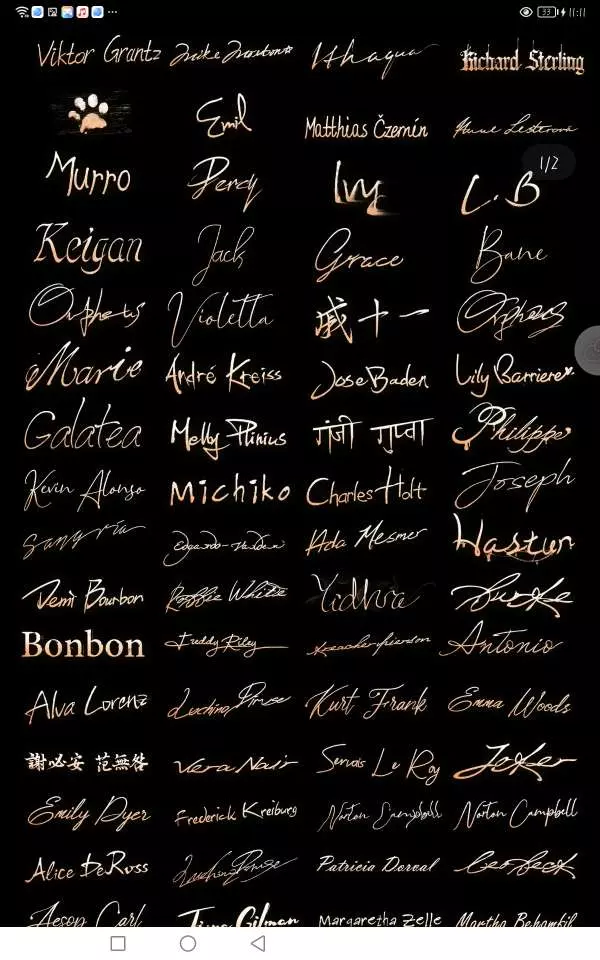 33 11:11
Viktor Grantz Mike Morton Ithaqua Richard Sterling
Emil Matthias Czernín Anne
1/2
Murro Percy Ivy L.B
Keigan Jack Grace Bane
Orpheus Violetta 戚十一 Orpheus
Marie André Kreiss Jose Baden Lily Barriere
Galatea Melly Plinius गंजी गुप्ता Philippe
Kevin Alonso Michiko Charles Holt Joseph
Sangria Edgardo Valden Ada Mesmer Hastur
Demi Bourbon Robbie White Yidhra Burke
Bonbon Freddy Riley Antonio
Alva Lorenz Luchino Diruse Kurt Frank Emma Woods
謝必安 范無咎 Vera Nair Servais Le Roy Joker
Emily Dyer Frederick Kreiburg Norton Campbell Norton Campbell
Alice DeRoss Luchino Diruse Patricia Dorval Leo Beck
Aesop Carl Gilman Margaretha Zelle Martha Behamfil